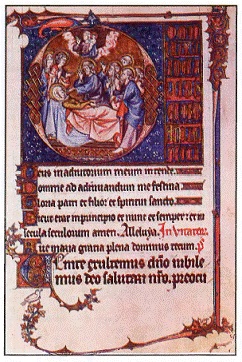 eus in adiutorium meum intende
Domine ad adiuvandum me festina
Gloria patri et filio: et spiritui sancto
Sicut erat in principio et nunc et semper: et in
secula seculorum amen. Alleluya. Invitator.
Ave maria gratia plena dominus tecum. p̄s
enite exultemus dño iubile
mus deo salutari nr̄o. preocu